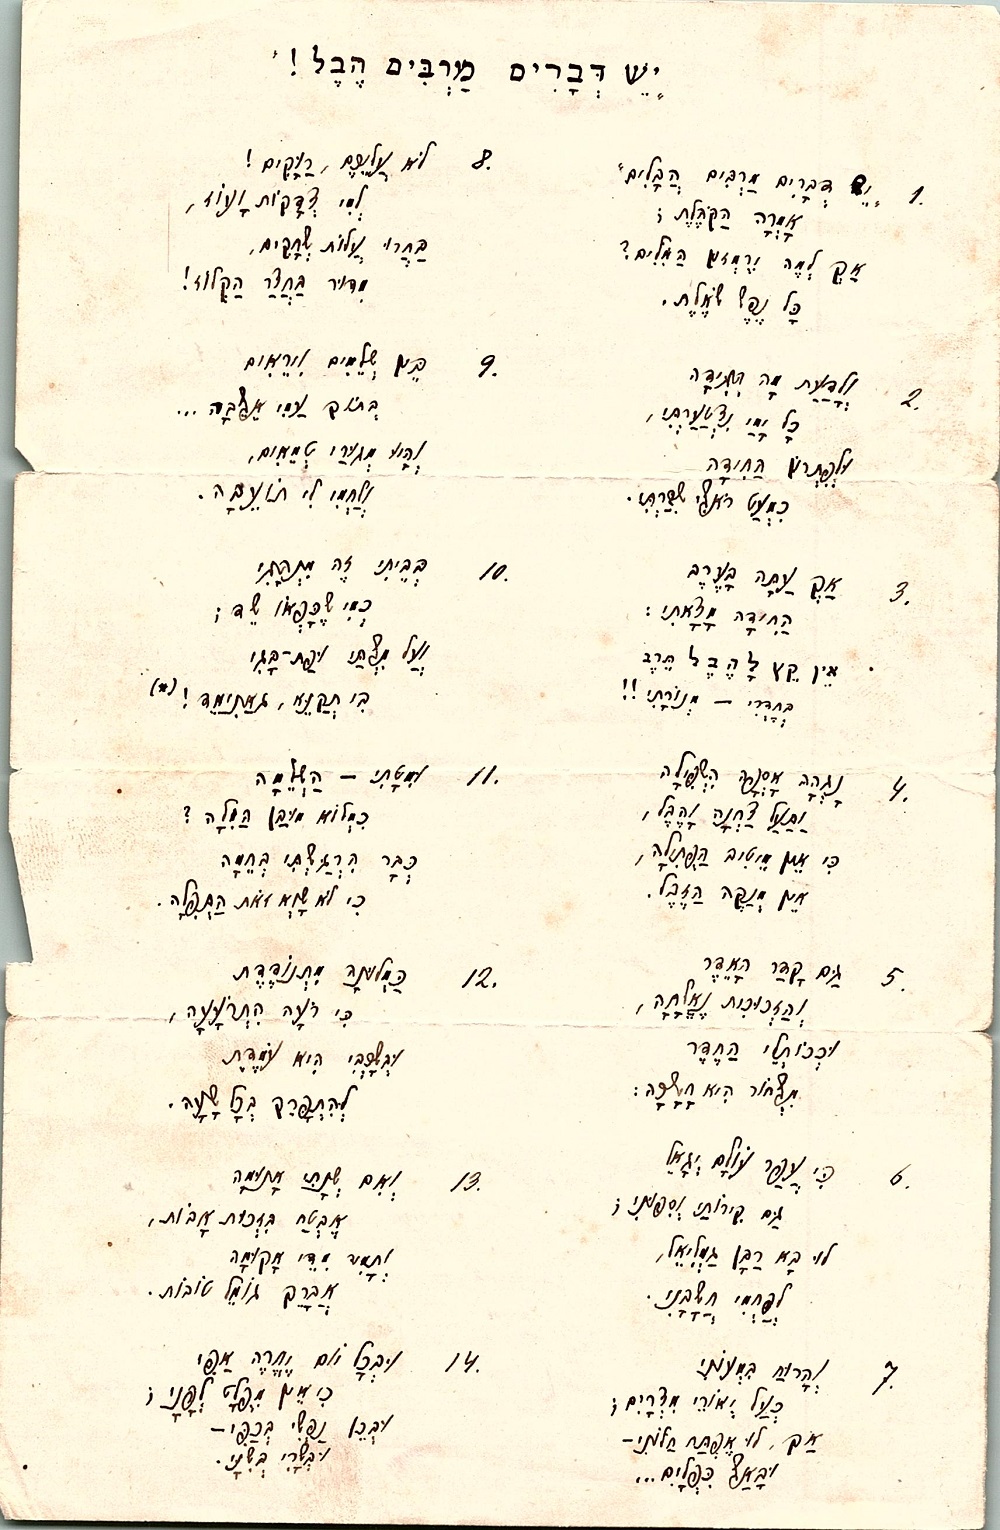 „יֵשׁ דְּבָרִים מַרְבִּים הֶבֶל!"
1. „יֵשׁ דְּבָרִים מַרְבִּים הֲבָלִים"
אָמְרָה הַקֹּהֶלֶת;
אַךְ לְמָה יִרְמְזוּן הַמִּלִּים?
כָּל נֶפֶשׁ שׁוֹאֶלֶת.
2. וְלָדַעַת מָה הַחִידָה
כָּל יָמַי נִצְטַעַרְתִּי,
וְלִפְתְּרוֹן הַחִידָה
כִּמְעַט רֹאשִׁי שִׁבַּרְתִּי.
3. אַךְ עַתָּה בָּעֶרֶב
הַחִידָה מָצָאתִי:
אֵין קֵץ לָהֶבֶל תֵּרֶב
בְּחַדְרִי – מְנוֹרָתִי!!
4. נָגְהָהּ אָסְפָה הַשְּׁפֵלָה
וַתַּעַל צַחֲנָה וָהֶבֶל,
כִּי אֵין מֵיטִיב הַפְּתִילָה,
אֵין מְנַקֶּה הַזֶּבֶל.
5. גַּם קָדַר הָאֶדֶר
וְהַזְּכוּכִית נֶאֱלָחָה,
וּכְכוֹתְלֵי הַחֶדֶר
מִשְּׁחוֹר הִיא חָשְׁכָה:
6. כִּי עֲפַר עוֹלָם יְגָאֵל
גַּם קִירוֹתַי וְסִפּוּנִי;
לוּ בָא רַבָּן גַּמְלִיאֵל,
לְפַחְמִי חֲשָׁבָנִי.
7. וְהָרוּחַ בִּמְעוֹנִי
כְּעַל יְאוֹרֵי מִצְרַיִם;
אַךְ, לוּ אֶפְתַּח חַלּוֹנִי–
וּבָאַשׁ כִּפְלַיִם...
8. לֹא עֲלֵיכֶם, רַוָּקִים!
לְמִי צְדָקוֹת וָעוֹז,
בַּחֲרוּ עֲלוֹת שְׁחָקִים,
מִדּוּר בַּחֲצַר הַקְלוֹז!
9. בֵּין שְׁלֵמִים וִירֵאִים
בְּתוֹךְ עַמִּי אֵשֵׁבָה...
וְהָיוּ מְגוּרַי טְמֵאִים,
וְלַחְמִי לִי תוֹעֵבָה.
10. בְּבֵיתִי זֶה מִתְהַתִּי
כְּמִי שֶׁכְּפָאוֹ שֵׁד;
וְעַל מִטָּתִי וּפַת-בָּגִי
בִּי תְקַנֵּא, גאַתְנִימֵד! (*)
11. וּמִטָּתִי – הַשְׁלֵמָה
כִּמְלוֹא מוּבַן הַמִּלָּה?
כְּבָר הִרְגַּשְׁתִּי בְּחֵמָה
כִּי לֹא שָׁוְא זֹאת הַתְּפִלָּה.
12. כַּמְּלוּנָה מִתְנוֹדֶדֶת
כִּי רֹעָה הִתְרֹעֲעָה,
וּבְשָׁכְבִי הִיא עוֹמֶדֶת
לְהִתְפָּרֵק בְּכָל שָׁעָה.
13. וְאִם שְׁנָתִי אָנוּמָה
אֶבְטַח בִּזְכוּת אָבוֹת,
וְתָמִיד מִדֵּי אָקוּמָה
אֲבָרֵךְ גּוֹמֵל טוֹבוֹת.
14. וּבְכָל יוֹם יֶחֱרֶה אַפִּי
כִּי אֵין מִפְלָט לְפָנָי;
וּבְכֵן נַפְשִׁי בְּכַפִּי–
וּבְשָׂרִי בְּשִׁנָּי.